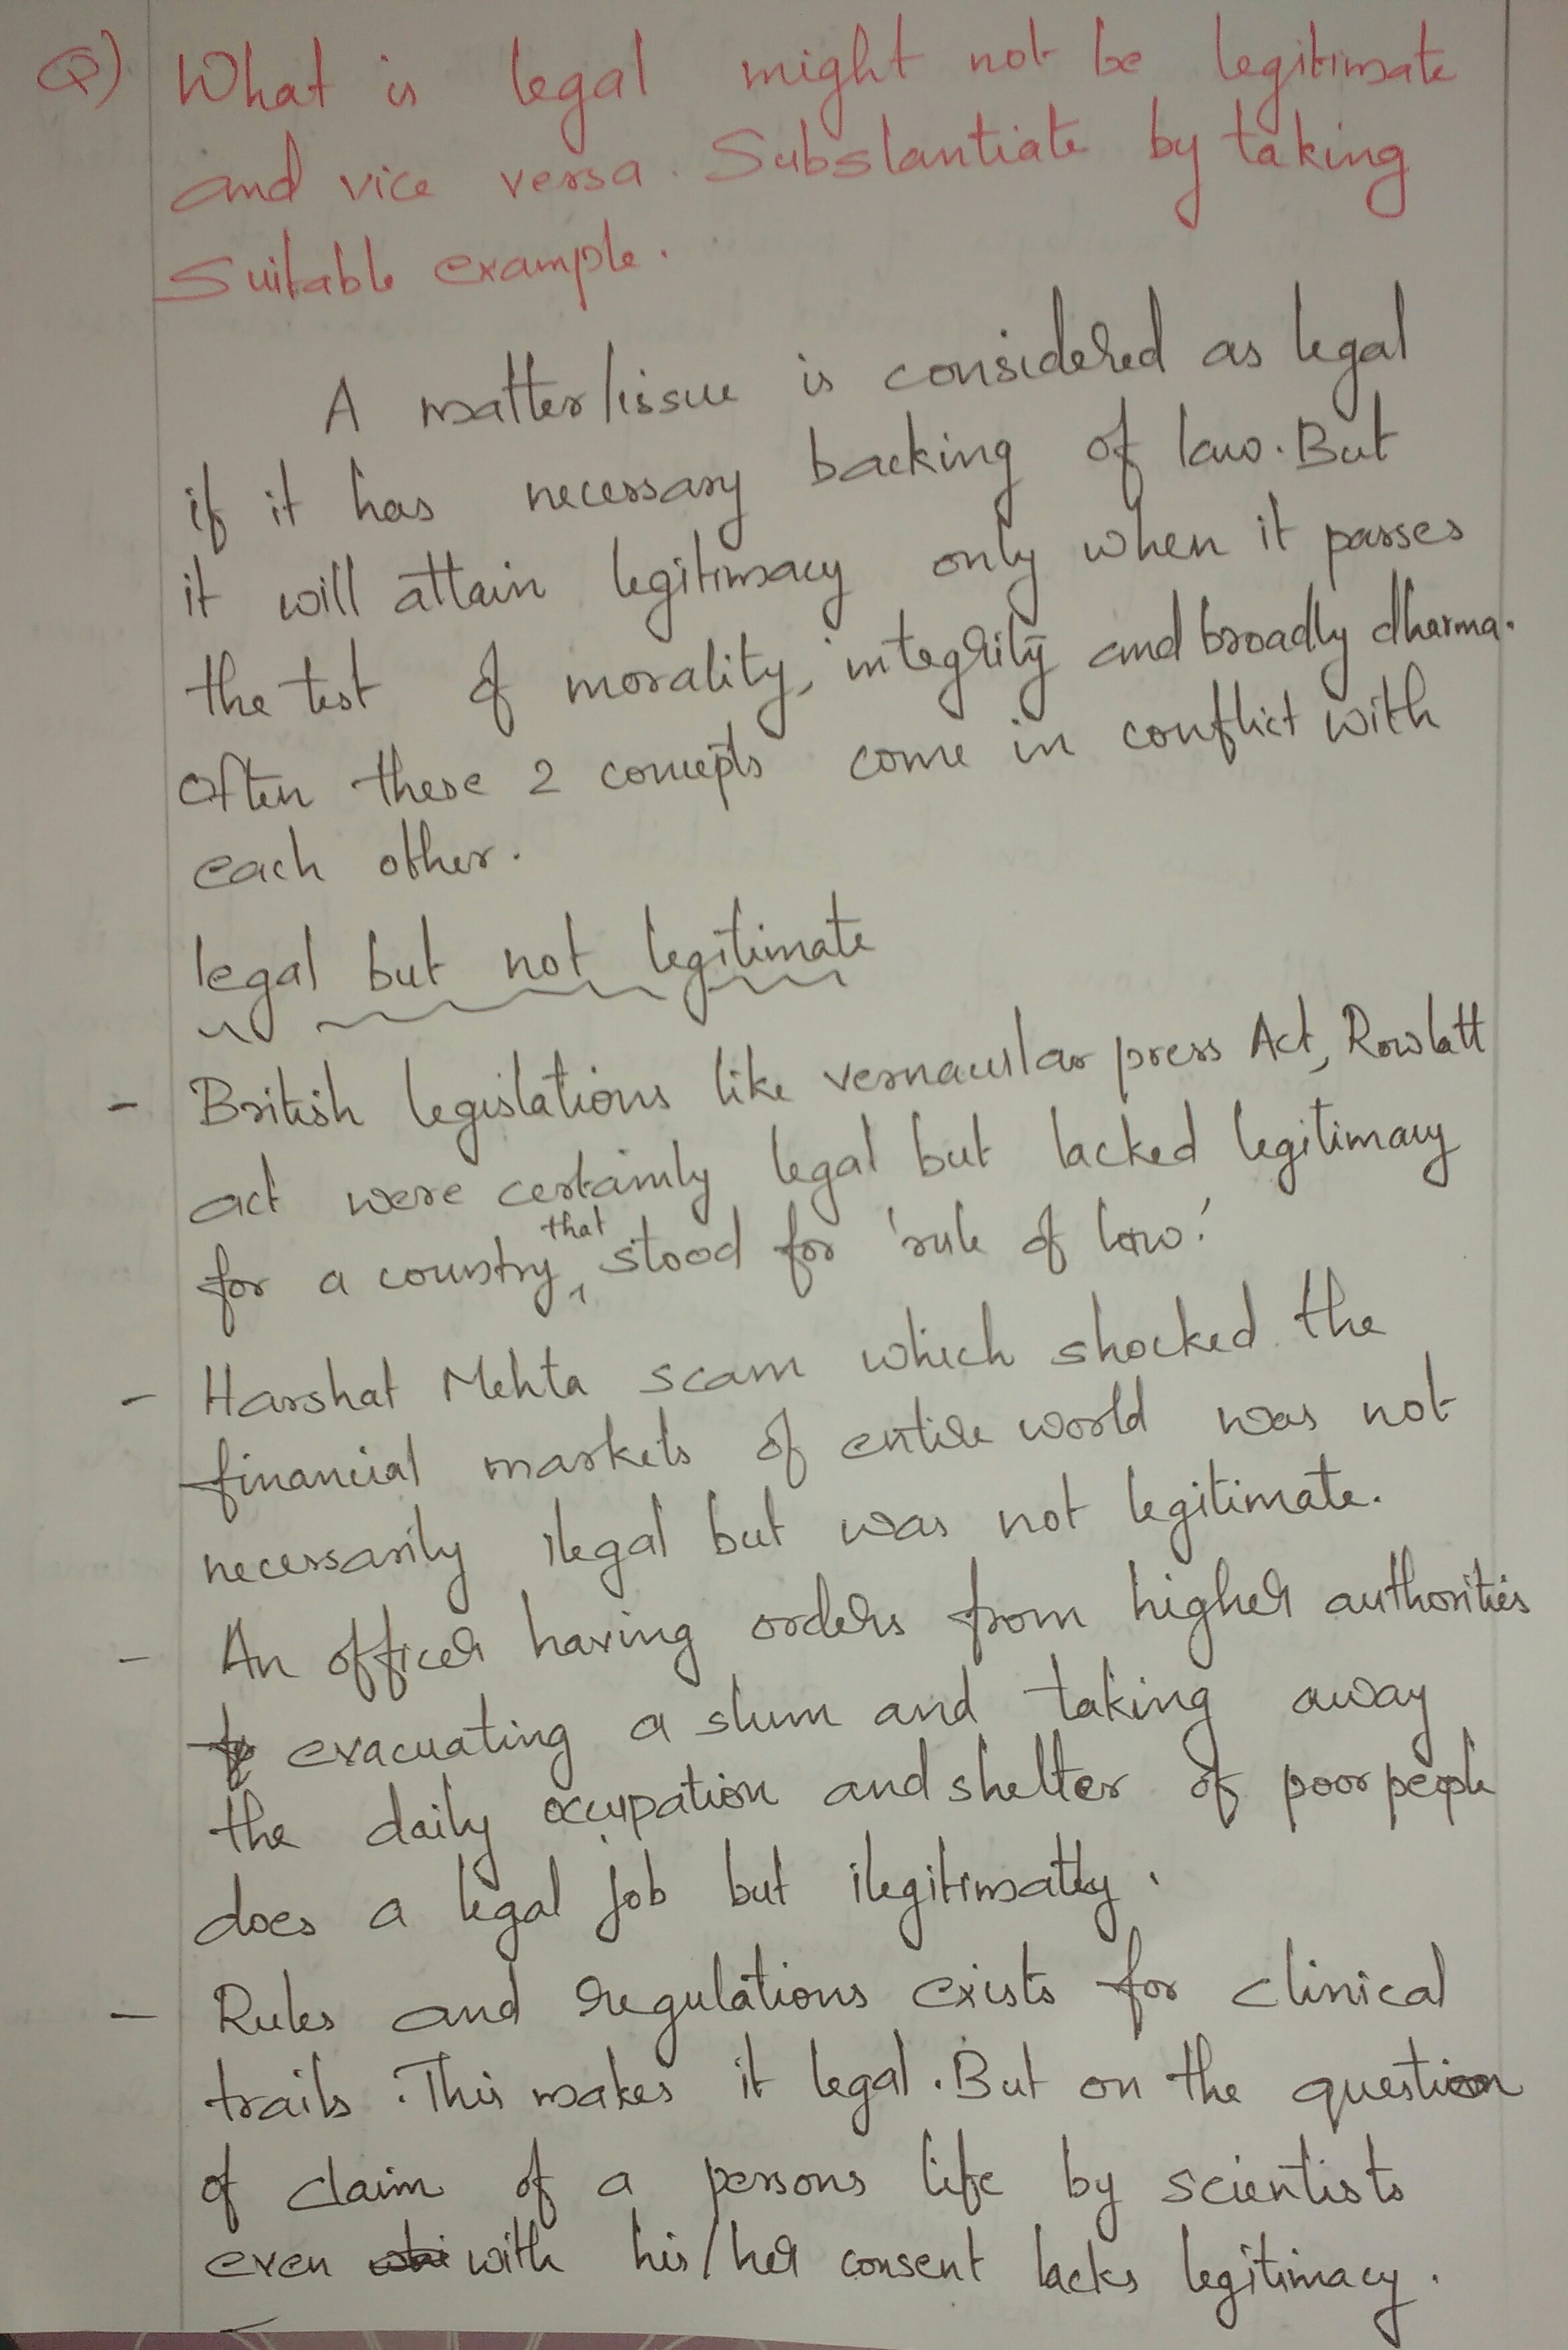 Q) What is legal might not be legitimate
and vice versa. Substantiate by taking
Suitable example.
A matter/issue is considered as legal
if it has necessary backing of law. But
it will attain legitimacy only when it passes
the test of morality, integrity and broadly dharma.
Often these 2 concepts come in conflict with
each other.
legal but not legitimate
- British legislations like vernacular press Act, Rowlatt
act were certainly legal but lacked legitimacy
for a country that stood for 'rule of law.'
- Harshat Mehta scam which shocked the
financial markets of entire world was not
necessarily ilegal but was not legitimate.
- An officer having orders from higher authorities
evacuating a slum and taking away
the daily occupation and shelter of poor people
does a legal job but ilegitimatly.
- Rules and regulations exists for clinical
trails. This makes it legal. But on the question
of claim of a persons life by scientists
even with his/her consent lacks legitimacy.